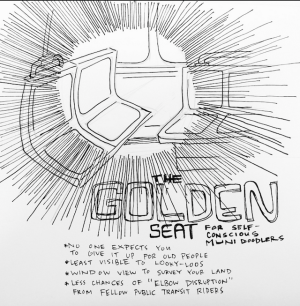 THE
GOLDEN
SEAT FOR SELF-
CONSCIOUS
MUNI DOODLERS
*NO ONE EXPECTS YOU
TO GIVE IT UP FOR OLD PEOPLE
*LEAST VISIBLE TO LOOKY-LOOS
*WINDOW VIEW TO SURVEY YOUR LAND
*LESS CHANCES OF "ELBOW DISRUPTION"
FROM FELLOW PUBLIC TRANSIT RIDERS